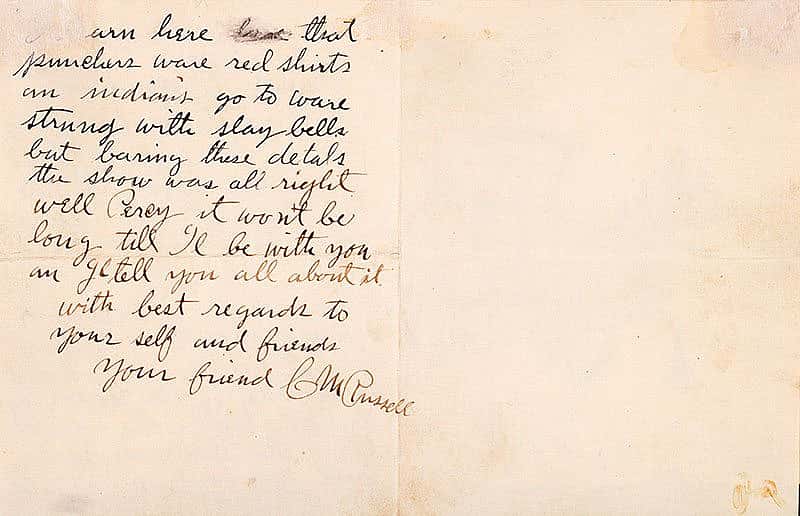 arn here that
punchers ware red shirts
an indians go to ware
strung with slay bells
but baring these detals
the show was all right
well Percy it wont be
long till Il be with you
an Il tell you all about it
with best regards to
your self and friends
Your friend CM Russell